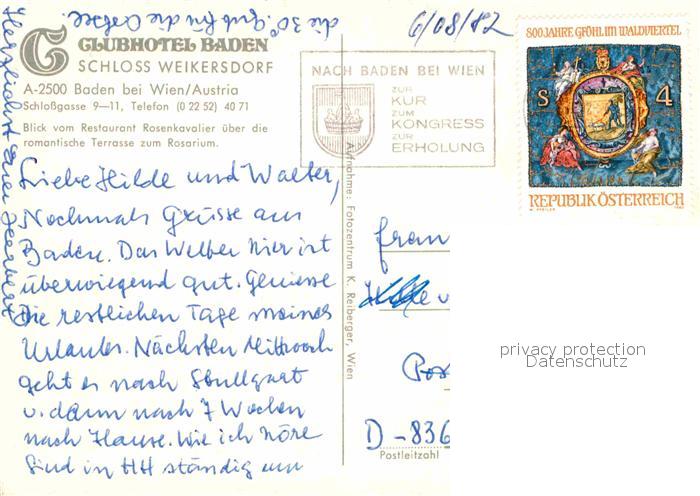 CLUBHOTEL BADEN
SCHLOSS WEIKERSDORF
A-2500 Baden bei Wien/Austria
Schloßgasse 9—11, Telefon (0 22 52) 40 71
Blick vom Restaurant Rosenkavalier über die
romantische Terrasse zum Rosarium.
6/08/82
Liebe Hilde und Walter,
Nochmals Grüsse aus
Baden. Das Wetter hier ist
überwiegend gut. Geniesse
die restlichen Tage meines
Urlaubs. Nächsten Mittwoch
geht es nach Stuttgart
u. dann nach 7 Wochen
nach Hause. Wie ich höre
sind in HH ständig um
die 30°. Gut für die
Herzlichst Euer Herbert
Aufnahme: Fotozentrum K. Reiberger, Wien
NACH BADEN BEI WIEN
ZUR
KUR
ZUM
KONGRESS
ZUR
ERHOLUNG
800 JAHRE GFÖHL IM WALDVIERTEL
S 4
REPUBLIK ÖSTERREICH
Frau
D-836
Postleitzahl
privacy protection
Datenschutz